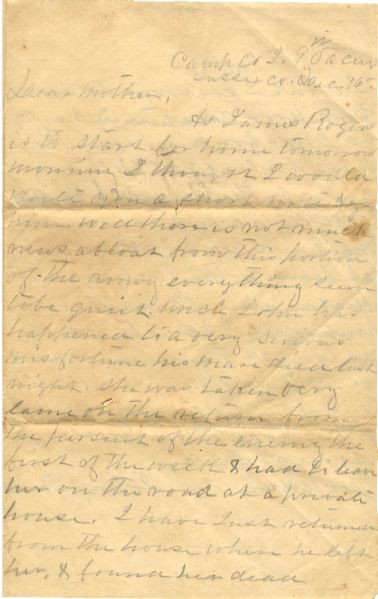 Camp Co I. 9 in Va Cav
Sussex Co. Dec. 16
Dear Mother,
As James Roger
is to start for home tomorrow
morning I thought I would
write you a short note by
him. Well there is not much
news afloat from this portion
of the army everything seem
to be quiet. Uncle John has
happened to a very serious
misfortune his mare died last
night. She was taken very
lame on the return from
the pursuit of the enemy the
first of the week & had to leave
her on the road at a private
house. I have Just returned
from the house where he left
her, & found her dead